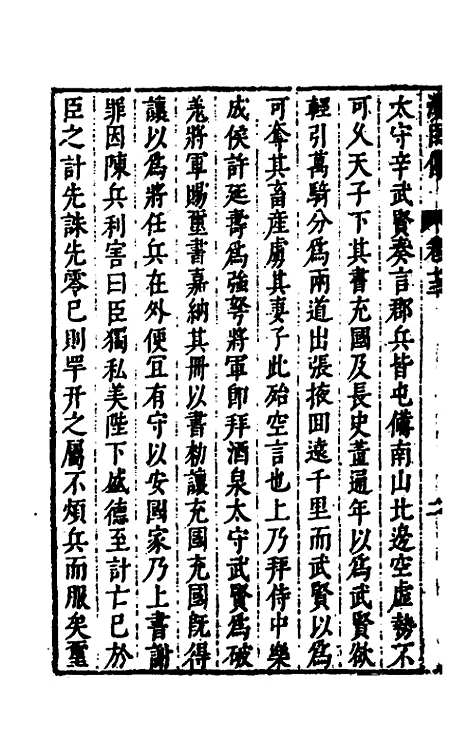 太守辛武賢奏言郡兵皆屯備南山北邊空虛勢不
可久天子下其書充國及長史董通年以爲武賢欲
輕引萬騎分爲兩道出張掖回遠千里而武賢以爲
可奪其畜産虜其妻子此殆空言也上乃拜侍中樂
成侯許延壽爲強弩將軍即拜酒泉太守武賢爲破
羌將軍賜璽書嘉納其冊以書勑讓充國充國旣得
讓以爲將任兵在外便宜有守以安國家乃上書謝
罪因陳兵利害曰臣獨私美陛下盛德至計亡已於
臣之計先誅先零已則䍐幵之屬不煩兵而服矣璽